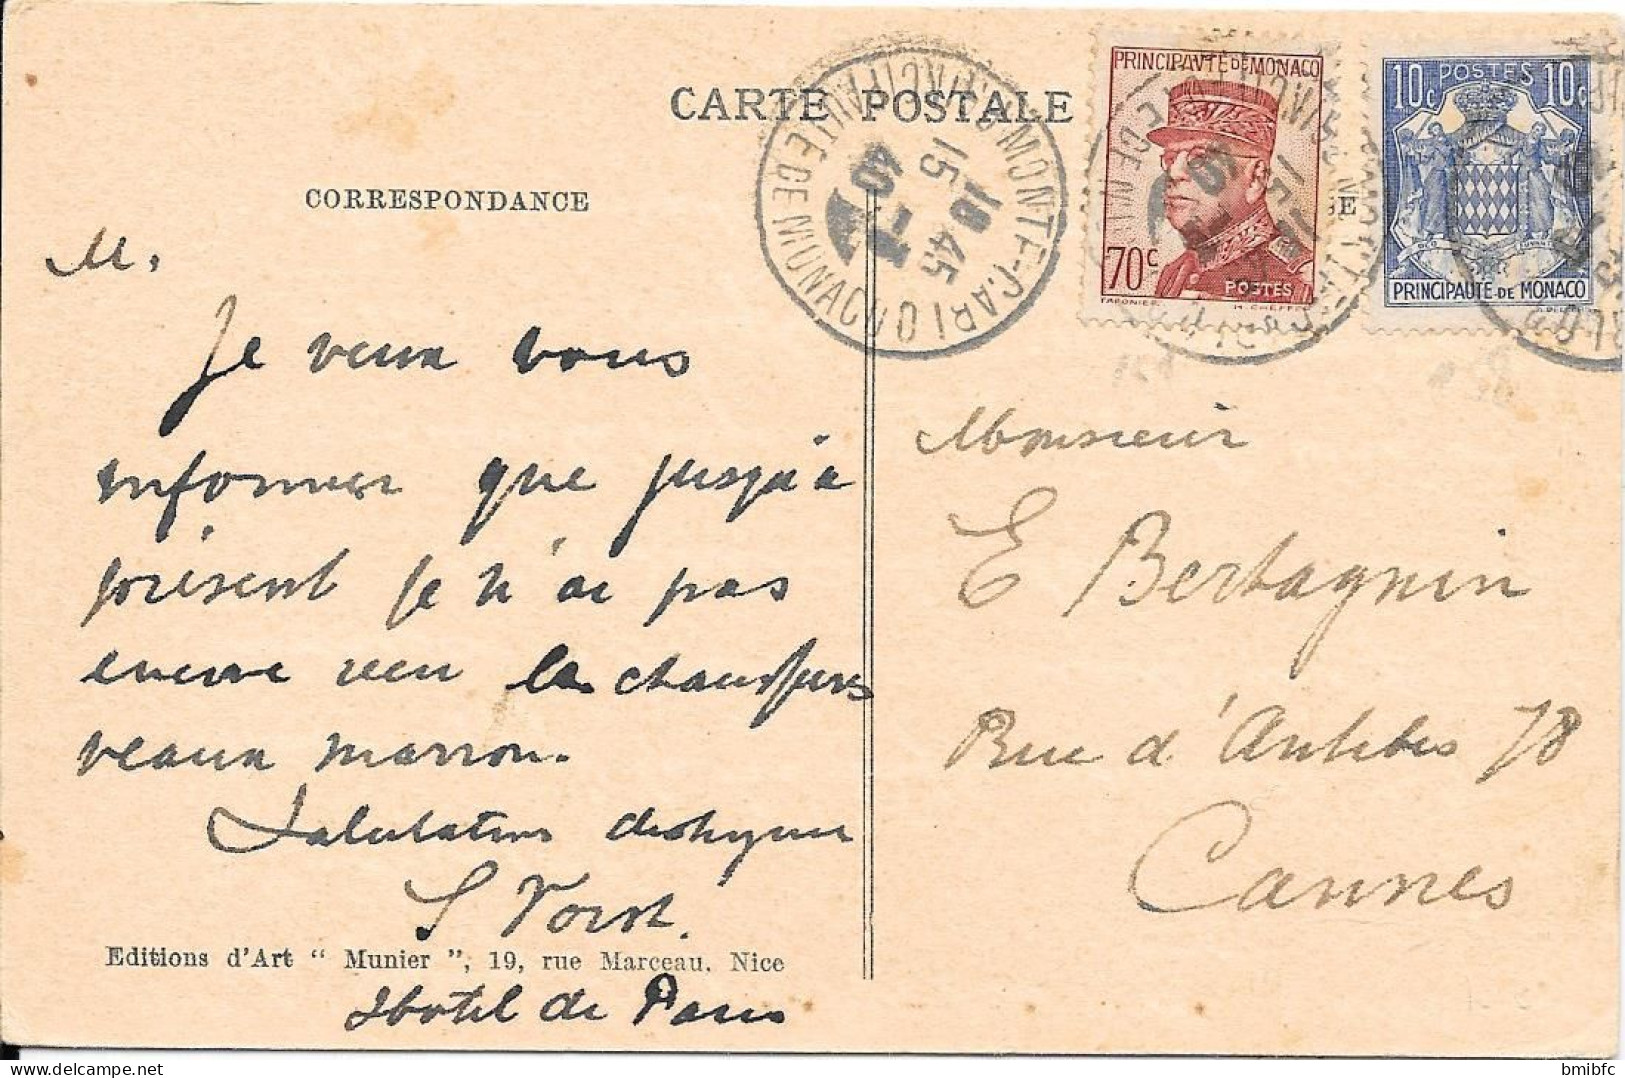 CARTE POSTALE
CORRESPONDANCE
M.
Je veux vous
informer que jusqu'à
présent je n'ai pas
encore reçu les chauffures
veaux marron.
Salutations
S
Editions d'Art “ Munier ”, 19, rue Marceau. Nice
Hotel de Paris
PRINCIPAUTÉ DE MONACO
70c
POSTES
10c POSTES 10c
PRINCIPAUTE DE MONACO
MONTE-CARLO
PRINCIPAUTÉ DE MONACO
15 45
40
Monsieur
E Bertagnin
Rue d'Antibes 78
Cannes
bmibfc